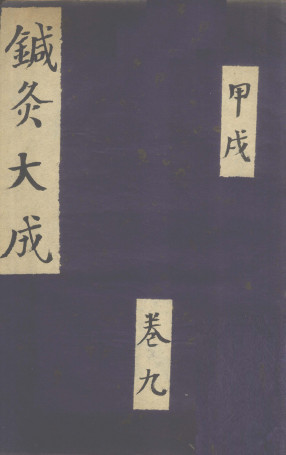 鍼灸大成
甲戌
卷九